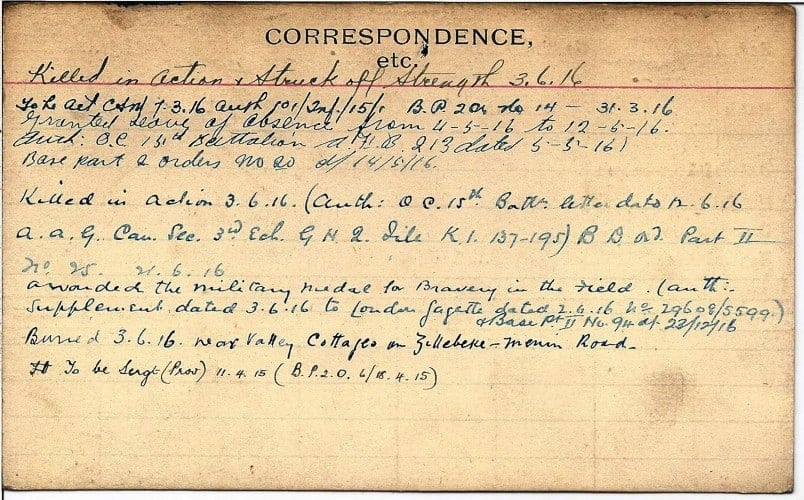 CORRESPONDENCE,
etc.
Killed in Action & Struck off Strength 3.6.16
To be Act CSM 7.3.16 Auth 101/Inf/15/1 B.P. 2 Or No 14 - 31.3.16
Granted leave of absence from 4-5-16 to 12-5-16.
Auth: O.C. 15th Battalion B 213 dated 5-5-16)
Base part 2 orders No 20 d/14/5/16.
Killed in Action 3.6.16. (Auth: O C. 15th Battn letter dated 12.6.16
A.A.G. Can. Sec. 3rd Ech. G H Q. File K.1. 137-195) B D Ord. Part II
No. 25. 21.6.16
Awarded the Military Medal for Bravery in the Field. (Auth:-
Supplement dated 3.6.16 to London Gazette dated 2.6.16 No. 29608/5599.)
& Base Pt II No. 94 df 22/12/16
Buried 3.6.16. near Valley Cottages on Zillebeke-Menin Road-
To be Sergt (Prov) 11.4.15 (B.P.2.O. 6/18.4.15)